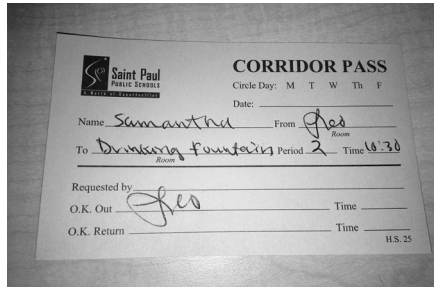 Saint Paul
PUBLIC SCHOOLS
A World of Opportunities
CORRIDOR PASS
Circle Day: M T W Th F
Date:
Name Samantha From Geo
Room
To Drinking Fountain Period 2 Time 10:30
Room
Requested by
O.K. Out Geo Time
O.K. Return Time
H.S. 25